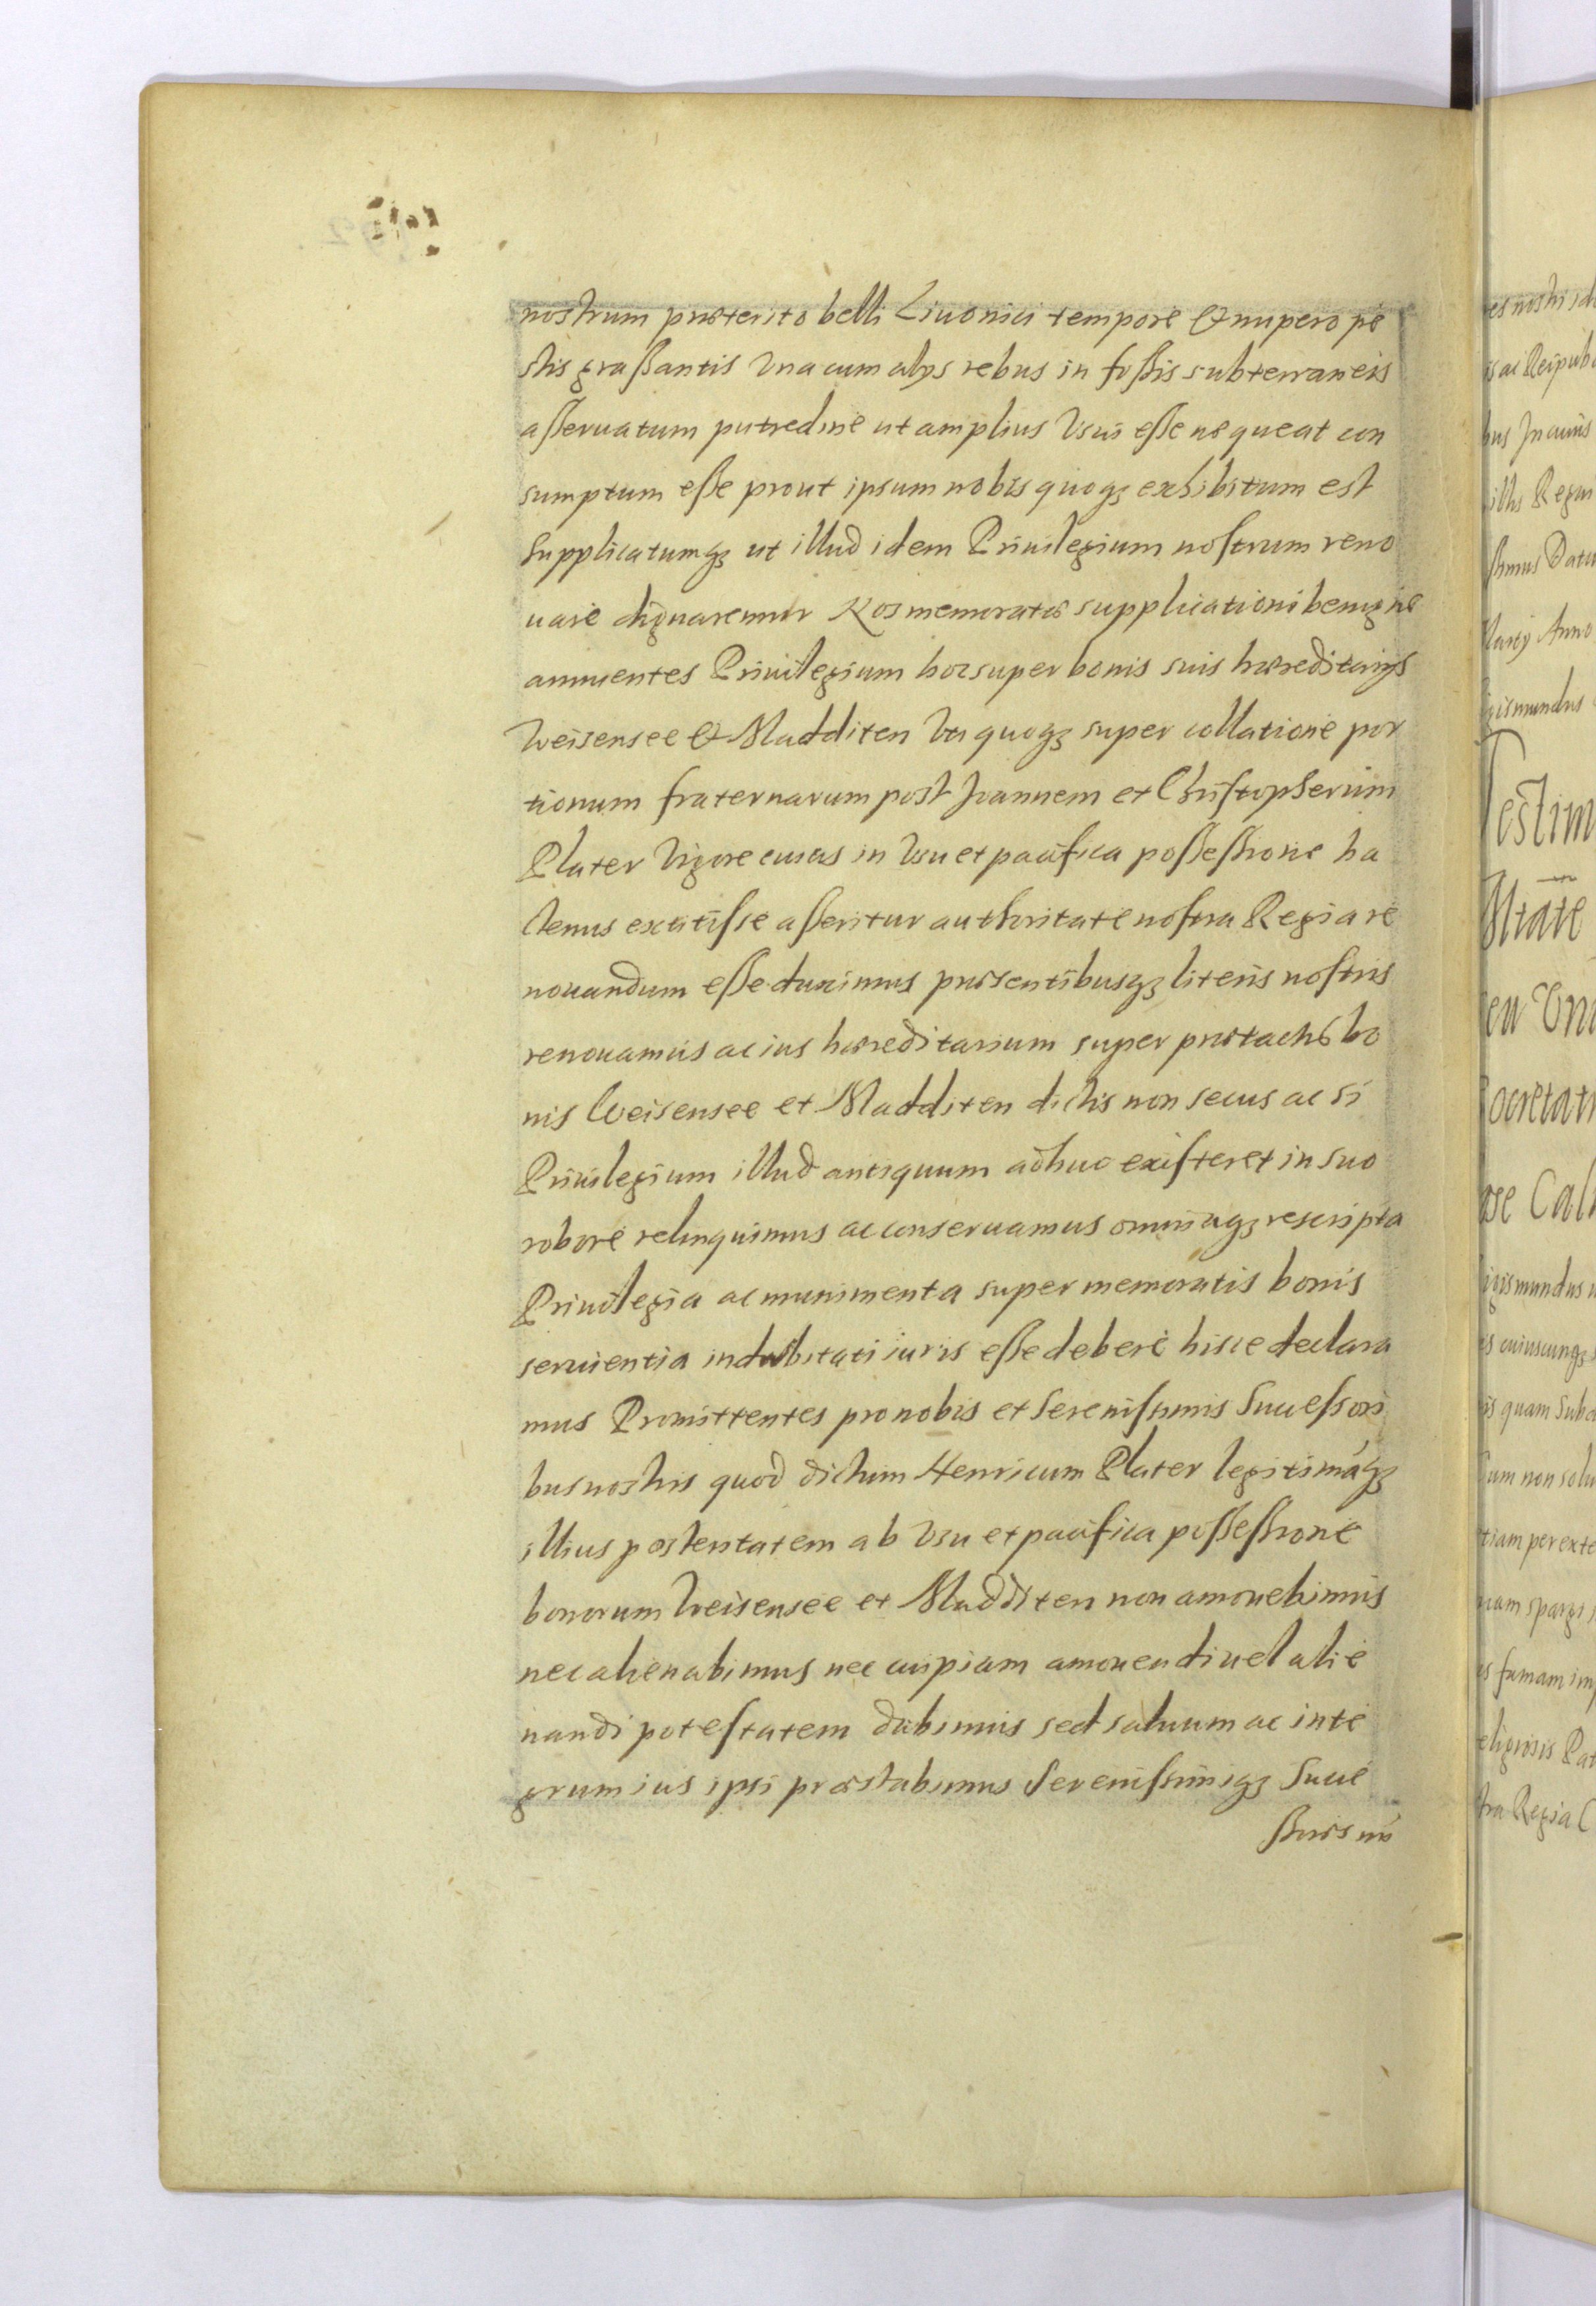 nostrum præterito belli Liuonici tempore & nupero pe
stis graßantis Vna cum alijs rebus in foßis subterraneis
aßeruatum putredine ut amplius Vsui eße nequeat con
sumptum eße prout ipsum nobis quoqȝ exhibitum est
Supplicatumqȝ ut illud idem Priuilegium nostrum reno
uare dignaremur Nos memoratæ supplicationi benigne
annuentes Priuilegium hoc super bonis suis hæreditarijs
Weisensee & Madditen Vti quoqȝ super collatione por
tionum fraternarum post Joannem et Christopherum
Plater Vigore cuius in Vsu et pacifica poßeßione ha
ctenus extitisse aßeritur authoritate nostra Regia re
nouandum eße duximus præsentibusqȝ literis nostris
renouamus ac ius hæreditarium super prætactis bo
nis Weisensee et Madditen dictis non secus ac si
Priuilegium illud antiquum adhuc existeret in suo
robore relinquimus ac conseruamus omniaqȝ rescripta
Priuilegia ac munimenta super memoratis bonis
seruientia indubitati iuris eße debere hisce declara
mus Promittentes pro nobis et Serenissimis Successori
bus nostris quod dictum Henricum Plater legitimáqȝ
illius posteritatem ab Vsu et pacifica poßeßione
bonorum Weisensee et Madditen non amouebimus
nec alienabimus nec cuipiam amouendi uel alie
nandi potestatem dabimus sed saluum ac inte
grum ius ipsi præstabimus Serenissimiqȝ Succe